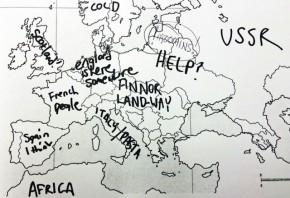 COLD
USSR
Scotland
england
is here
somewhere
HELP?
French
people
ANNOR
LANDWAY
Spain
I think
ITALY/PASTA
AFRICA